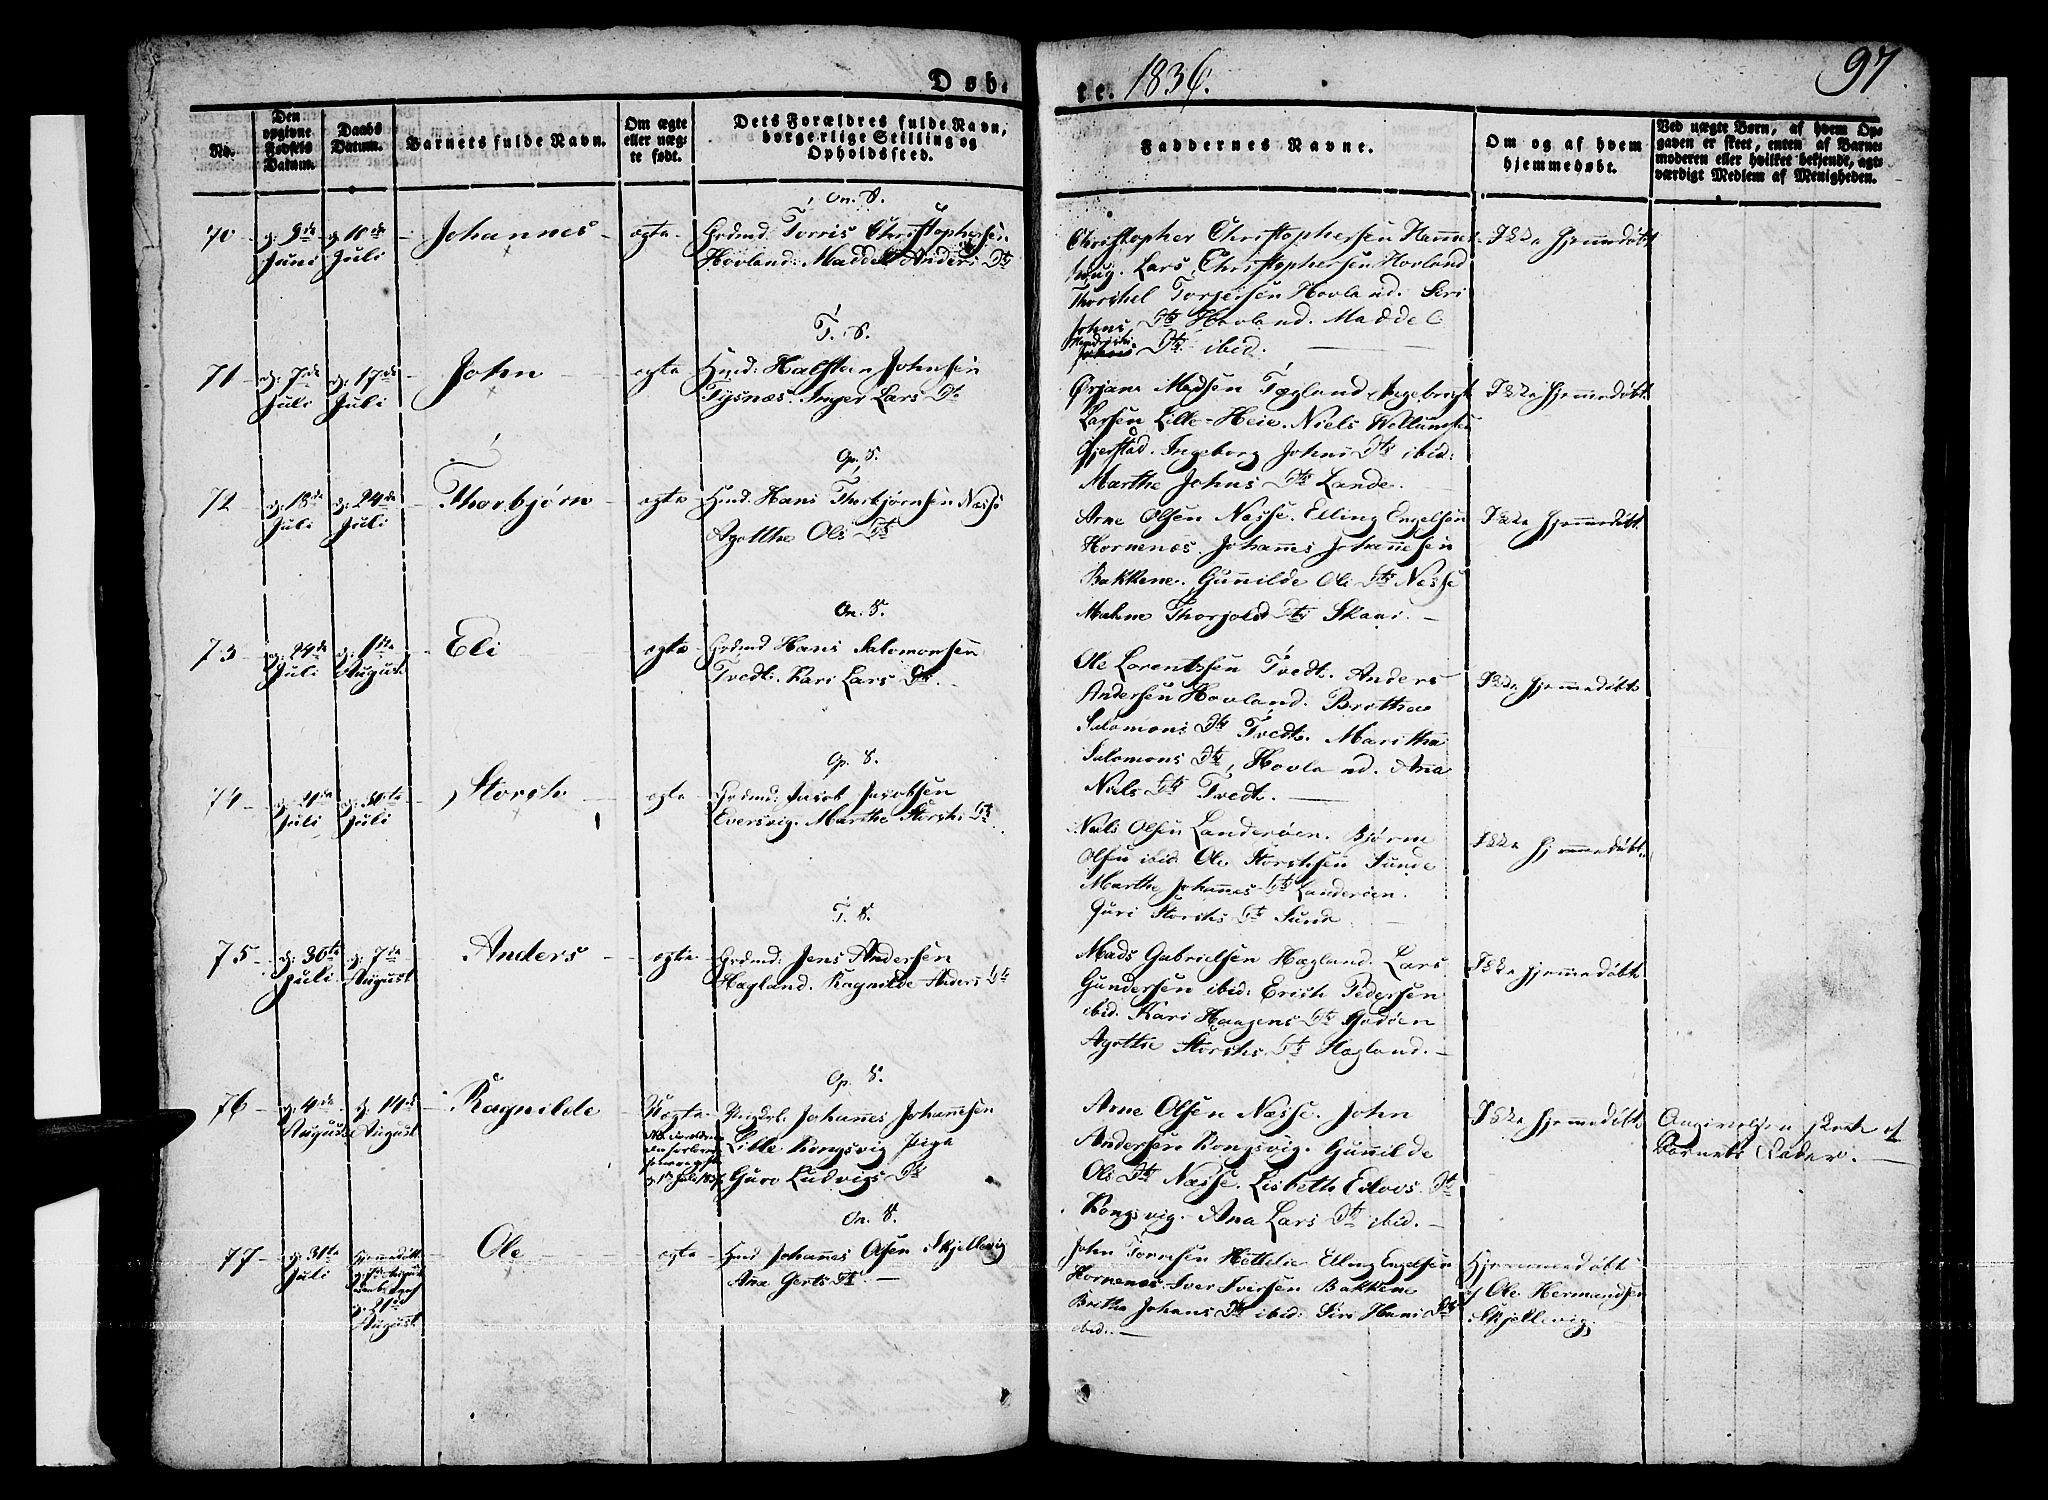 Døbte. 1836. 97
No.
Den opgivne Fødsels Datum.
Daabs Datum.
Barnets fulde Navn.
Om ægte eller uægte født.
Dets Forældres fulde Navn, borgerlige Stilling og Opholdssted.
Faddernes Navne.
Om og af hvem hjemmedøbt.
Ved uægte Børn, af hvem Opgaven er skeet, enten af Barnemoderen eller hvilket bekjendt, agtværdigt Medlem af Menigheden.
On. S.
70 d: 9de Juni d: 10de Juli Johannes ægte
Torris Christophersen
Hovland. Anders Dtr
Christopher Christophersen
Lars Christophersen Hovland
Torgersen Hovland. Siri
Johns Dtr Hovland. Maddel
Dtr ibid.
Ikke hjemmedøbt
T. S.
71 d: 7de Juli d: 17de Juli John ægte
Hmd: Halsten Johnsen
Tysnæs. Inger Lars Dtr
Ørjans Madsen
Larsen Lille-Heie. Niels
Gjerstad. Ingeborg Johns Dtr ibid:
Marthe Johns Dtr Lande.
Ikke hjemmedøbt
Op. S.
72 d: 18de Juli d: 24de Juli Thorbjørn ægte
Hmd: Hans Thorbjørnsen Næsse
Agatthe Ols Dtr
Arne Olsen Næsse. Elling Engelsen
Hornenæs. Johannes Johannesen
Bakkene. Gunnilde Ols Dtr Næsse
Malene Dtr
Ikke hjemmedøbt
On. S.
73 d: 24de Juli August Eli ægte
Grdmd Hans Salomonsen
Tvedt. Kari Lars Dtr.
Ole Lorentzsen Tvedt. Anders
Andersen Hovland. Brittha
Salomons Dtr Tvedt. Maritha
Salomons Dtr, Hovland. Ana
Niels Dtr Tvedt.
Ikke hjemmedøbt
Op. S.
74 Juli d: 30te Juli Storch ægte
Grdmd: Jacob Jacobsen
Eversvig. Marthe Storchs Dtr
Niels Olsen Landerøen. Bjørne
Olsen ibid Ole Storchsen Sunde
Marthe Johannes Dtr Landerøen.
Guri Storchs Dtr Sunde
Ikke hjemmedøbt
T. S.
75 d: 30te Juli d: 7de August Anders ægte
Grdmd: Jens Andersen
Hægland. Ragnilde Anders Dtr
Mads Gabrielsen Hægland. Lars
Gundersen ibid: Erich Pedersen
ibid. Kari Haagens Dtr Godøen
Agothe Storchs Dtr Hægland.
Ikke hjemmedøbt
Op. S.
76 d: 4de August d: 14de August Ragnilde Uægte
Johannes Johannesen
Lille Kongsvig Pige
Guro Ludvigs Dtr
Arne Olsen Næsse. John
Andersen Kongsvig. Gunnilde
Ols Dtr Næsse. Lisbeth Dtr
Kongsvig. Ana Lars Dtr ibid.
Ikke hjemmedøbt
Angivelsen skeet af
Barnets Fader.
On. S.
77 d: 31te Juli Hjemmedøbt
August Ole ægte
Hmd Johannes Olsen Skjellevig
Ana Gerts Dtr.
John Elling Engelsen
Hornenæs. Iver Iversen Bakkene
Britha Johans Dtr ibid: Siri Hans Dtr
ibid.
Hjemmedøbt
af Ole Hermandsen
Skjellevig.